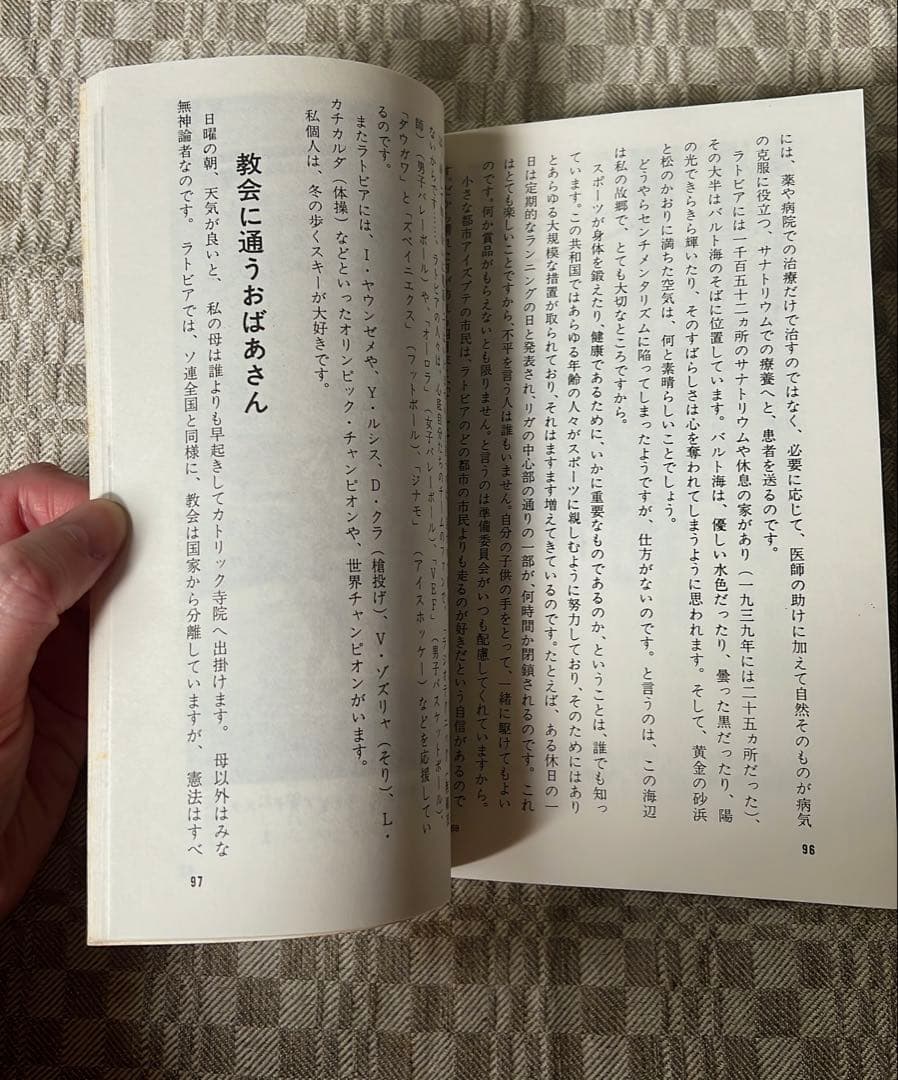 には、薬や病院での治療だけで治すのではなく、必要に応じて、医師の助けに加えて自然そのものが病気
の克服に役立つ、サナトリウムでの療養へと、患者を送るのです。
ラトビアには一千百五十二ヵ所のサナトリウムや休息の家があり(一九三九年には二十五ヵ所だった)、
その大半はバルト海のそばに位置しています。バルト海は、優しい水色だったり、曇った黒だったり、陽
の光できらきら輝いたり、そのすばらしさは心を奪われてしまうように思われます。そして、黄金の砂浜
と松のかおりに満ちた空気は、何と素晴らしいことでしょう。
どうやらセンチメンタリズムに陥ってしまったようですが、仕方がないのです。と言うのは、この海辺
は私の故郷で、とても大切なところですから。
スポーツが身体を鍛えたり、健康であるために、いかに重要なものであるのか、ということは、誰でも知っ
ています。この共和国ではあらゆる年齢の人々がスポーツに親しむように努力しており、そのためにはあり
とあらゆる大規模な措置が取られており、それはますます増えてきているのです。たとえば、ある休日の一
日は定期的なランニングの日と発表され、リガの中心部の通りの一部が、何時間か閉鎖されるのです。これ
はとても楽しいことですから、不平を言う人は誰もいません。自分の子供の手をとって、一緒に駆けてもよい
のです。何か賞品がもらえないとも限りません。と言うのは準備委員会がいつも配慮してくれていますから。
小さな都市アイズプテの市民は、ラトビアのどの都市の市民よりも走るのが好きだという自信があるので
96
ないからです……、ラトビアの人々は、
師)(男子バレーボール)や、「オーロラ」(女子バレーボール)、「VEF」(男子バスケットボール)、
「ダウガワ」と「ズベイニエクス」(フットボール)、「ジナモ」(アイスホッケー)などを応援してい
るのです。
またラトビアには、I・ヤウンゼメや、Y・ルシス、D・クラ(槍投げ)、V・ゾズリャ(そり)、L・
カチカルダ(体操)などといったオリンピック・チャンピオンや、世界チャンピオンがいます。
私個人は、冬の歩くスキーが大好きです。
教会に通うおばあさん
日曜の朝、天気が良いと、私の母は誰よりも早起きしてカトリック寺院へ出掛けます。母以外はみな
無神論者なのです。ラトビアでは、ソ連全国と同様に、教会は国家から分離していますが、憲法はすべ
97